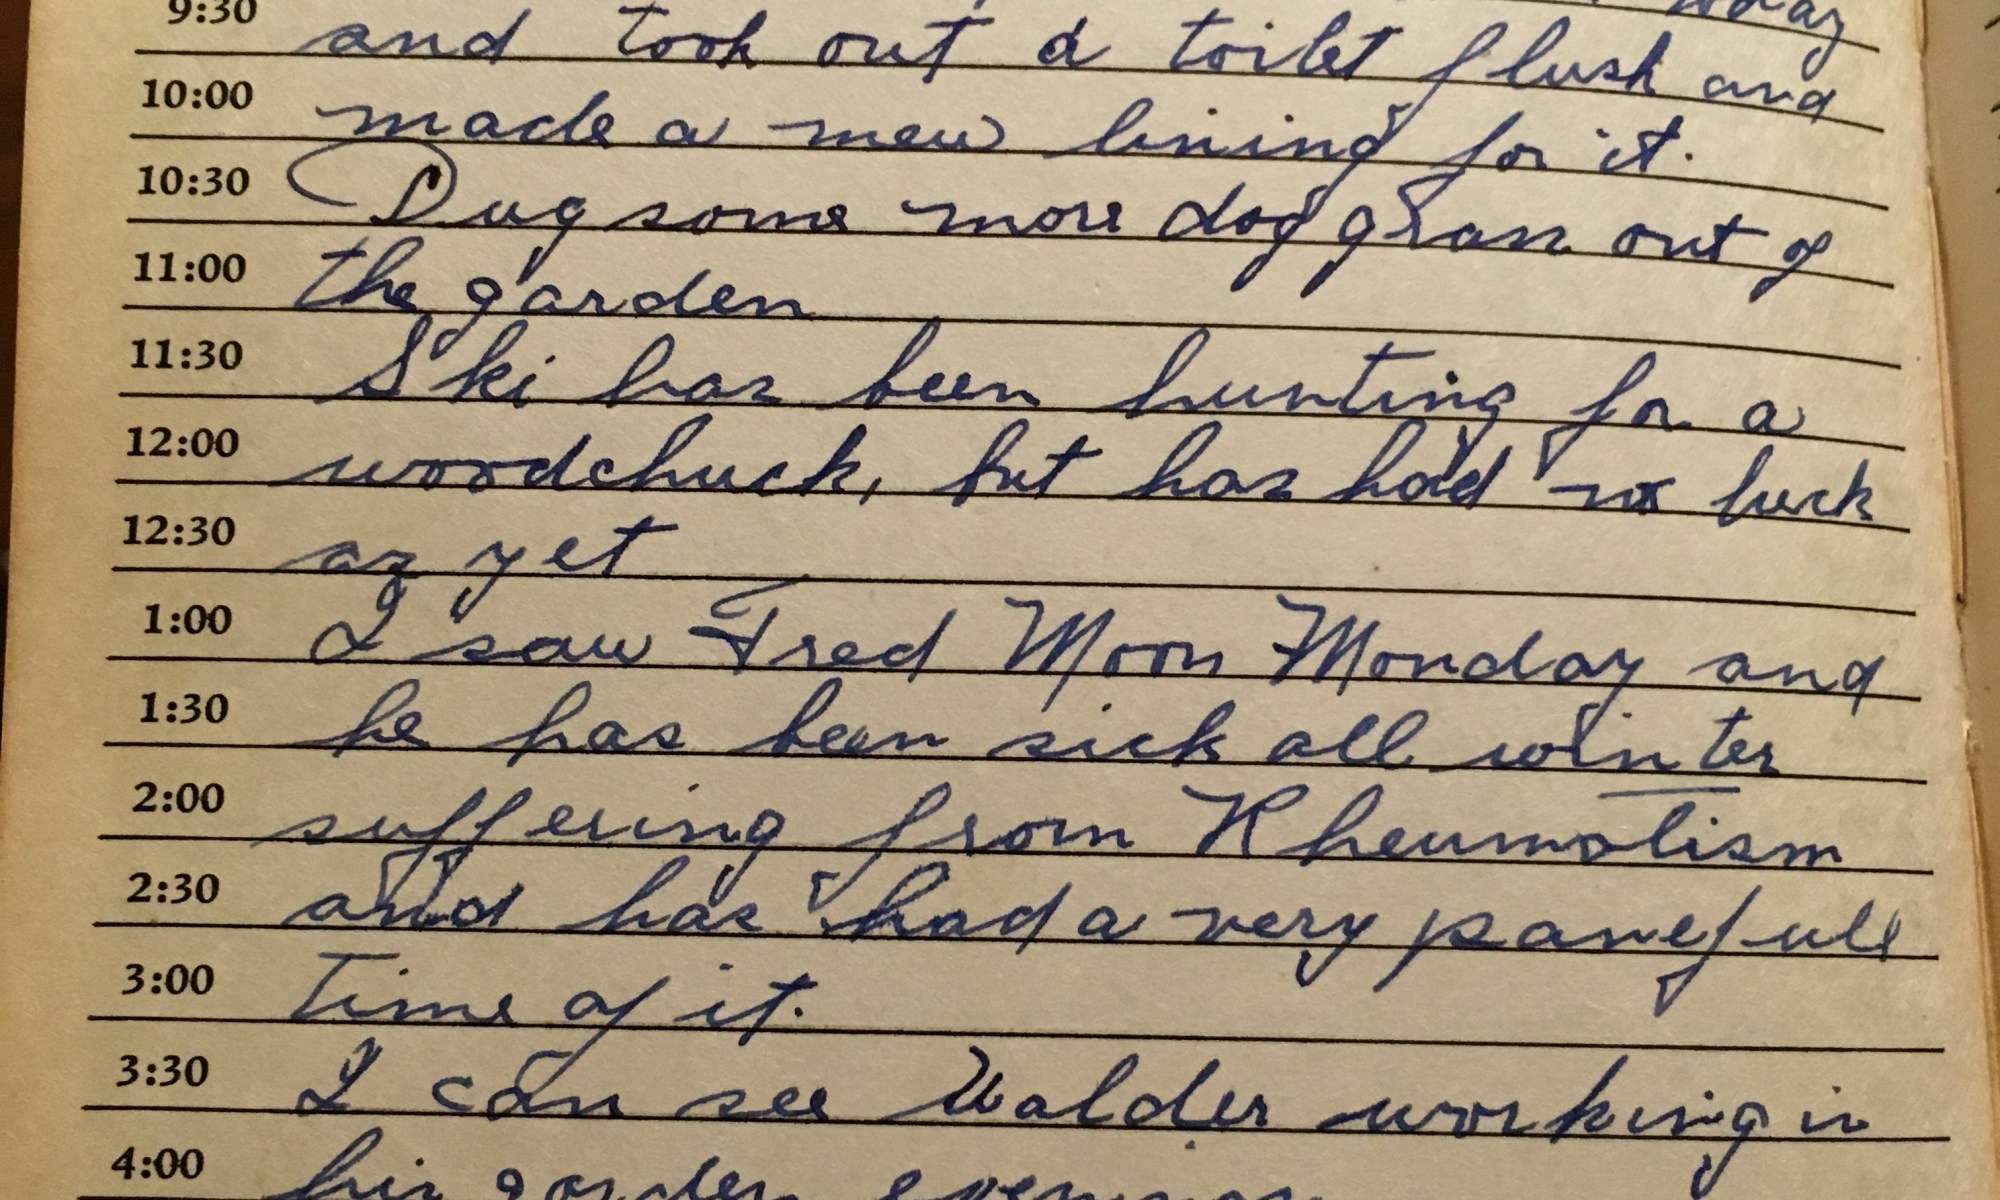 today
9:30 and took out a toilet flush and
10:00 made a new lining for it.
10:30 Dug some more dog gras out of
11:00 the garden
11:30 Ski has been hunting for a
12:00 woodchuck, but has had no luck
12:30 as yet
1:00 I saw Fred Moon Monday and
1:30 he has been sick all winter
2:00 suffering from Rheumatism
2:30 and has had a very panefull
3:00 time of it.
3:30 I can see Walder working in
4:00 his garden evenings